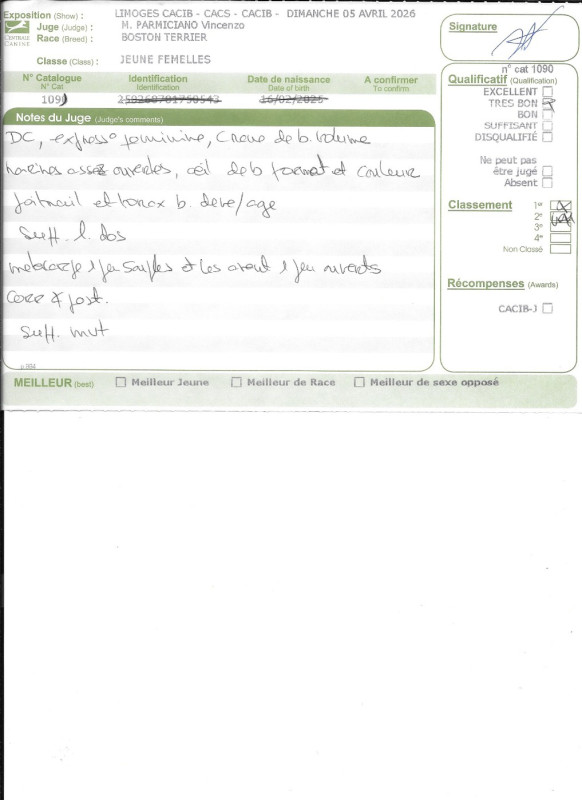 Exposition (Show) : LIMOGES CACIB - CACS - CACIB - DIMANCHE 05 AVRIL 2026
Juge (Judge) : M. PARMICIANO Vincenzo
Race (Breed) : BOSTON TERRIER
CENTRALE CANINE
Classe (Class) : JEUNE FEMELLES
N° Catalogue Identification Date de naissance A confirmer
N° Cat Identification Date of birth To confirm
1091 250268701750543 16/02/2025
Notes du Juge (Judge's comments)
DC, express° feminine, Crane de b. volume
narines assez ouvertes, œil de b format et couleur
poitrail et thorax b. deve/age
Suff. l. dos
metacarpe 1 peu souples et les avant 1 peu ouverts
Corr post.
Suff. mvt
MEILLEUR (best) Meilleur Jeune Meilleur de Race Meilleur de sexe opposé
Signature
n° cat 1090
Qualificatif (Qualification)
EXCELLENT
TRES BON
BON
SUFFISANT
DISQUALIFIÉ
Ne peut pas
être jugé
Absent
Classement 1er
2e
3e
4e
Non Classé
Récompenses (Awards)
CACIB-J